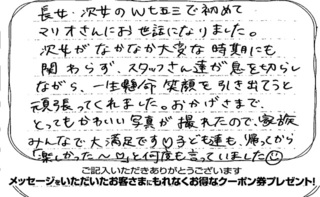 長女、次女のW七五三で初めて
マリオさんにお世話になりました。
次女がなかなか大変な時期にも
関わらず、スタッフさん達が息を切らし
ながら、一生懸命笑顔を引き出てうと
頑張ってくれました。おかげさまで、
とってもかわいい写真が撮れたので、家族
みんなで大満足です♡子ども達も、帰ってから
「楽しかった〜♡」と何度も言っていました☺
ご記入いただきありがとうございます
メッセージをいただいたお客さまにもれなくお得なクーポン券プレゼント!